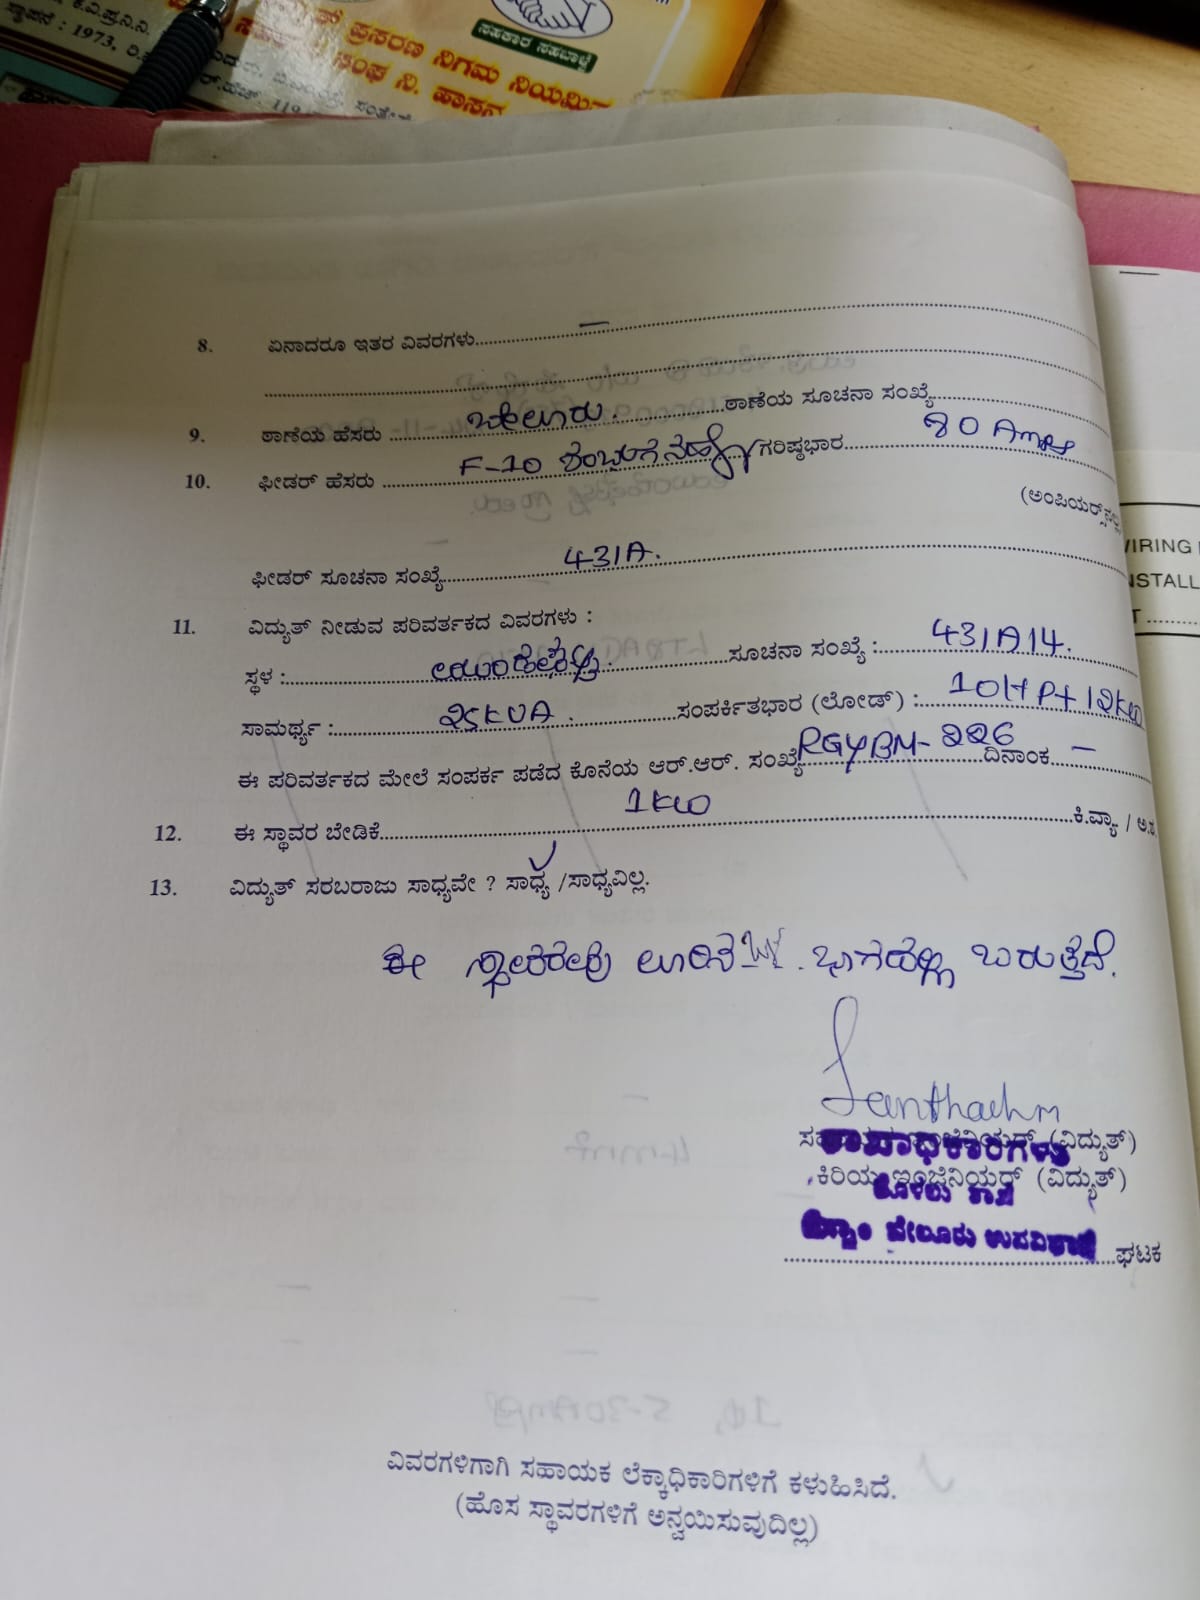 ಸ್ಥಾಪನೆ : 1973,
ಪ್ರಸರಣ ನಿಗಮ
ಸಂಘ ನಿ. ಹಾಸನ
ಸಹಕಾರ ಸಹಬಾಳ್ವೆ
8. ಏನಾದರೂ ಇತರ ವಿವರಗಳು —
9. ಠಾಣೆಯ ಹೆಸರು ಬೇಲೂರು. ಠಾಣೆಯ ಸೂಚನಾ ಸಂಖ್ಯೆ
10. ಫೀಡರ್ ಹೆಸರು F-10 ಗರಿಷ್ಠಭಾರ 80 Amps
(ಅಂಪಿಯರ್ಸ್
ಫೀಡರ್ ಸೂಚನಾ ಸಂಖ್ಯೆ 431A.
11. ವಿದ್ಯುತ್ ನೀಡುವ ಪರಿವರ್ತಕದ ವಿವರಗಳು :
ಸ್ಥಳ : ಸೂಚನಾ ಸಂಖ್ಯೆ : 431A14.
ಸಾಮರ್ಥ್ಯ : 25KVA. ಸಂಪರ್ಕಿತಭಾರ (ಲೋಡ್) : 10HP+12KW
ಈ ಪರಿವರ್ತಕದ ಮೇಲೆ ಸಂಪರ್ಕ ಪಡೆದ ಕೊನೆಯ ಆರ್.ಆರ್. ಸಂಖ್ಯೆ RGYBM-226 ದಿನಾಂಕ —
12. ಈ ಸ್ಥಾವರ ಬೇಡಿಕೆ 1KW ಕಿ.ವ್ಯಾ / ಅ.ಶ.
13. ವಿದ್ಯುತ್ ಸರಬರಾಜು ಸಾಧ್ಯವೇ ? ಸಾಧ್ಯ /ಸಾಧ್ಯವಿಲ್ಲ.
ಈ ಸ್ಥಾವರವು ಊರಿನ ಬರುತ್ತದೆ.
(ವಿದ್ಯುತ್)
ಕಿರಿಯ ಇಂಜಿನಿಯರ್ (ವಿದ್ಯುತ್)
ಬೇಲೂರು ಉಪವಿಭಾಗ ಘಟಕ
ವಿವರಗಳಿಗಾಗಿ ಸಹಾಯಕ ಲೆಕ್ಕಾಧಿಕಾರಿಗಳಿಗೆ ಕಳುಹಿಸಿದೆ.
(ಹೊಸ ಸ್ಥಾವರಗಳಿಗೆ ಅನ್ವಯಿಸುವುದಿಲ್ಲ)